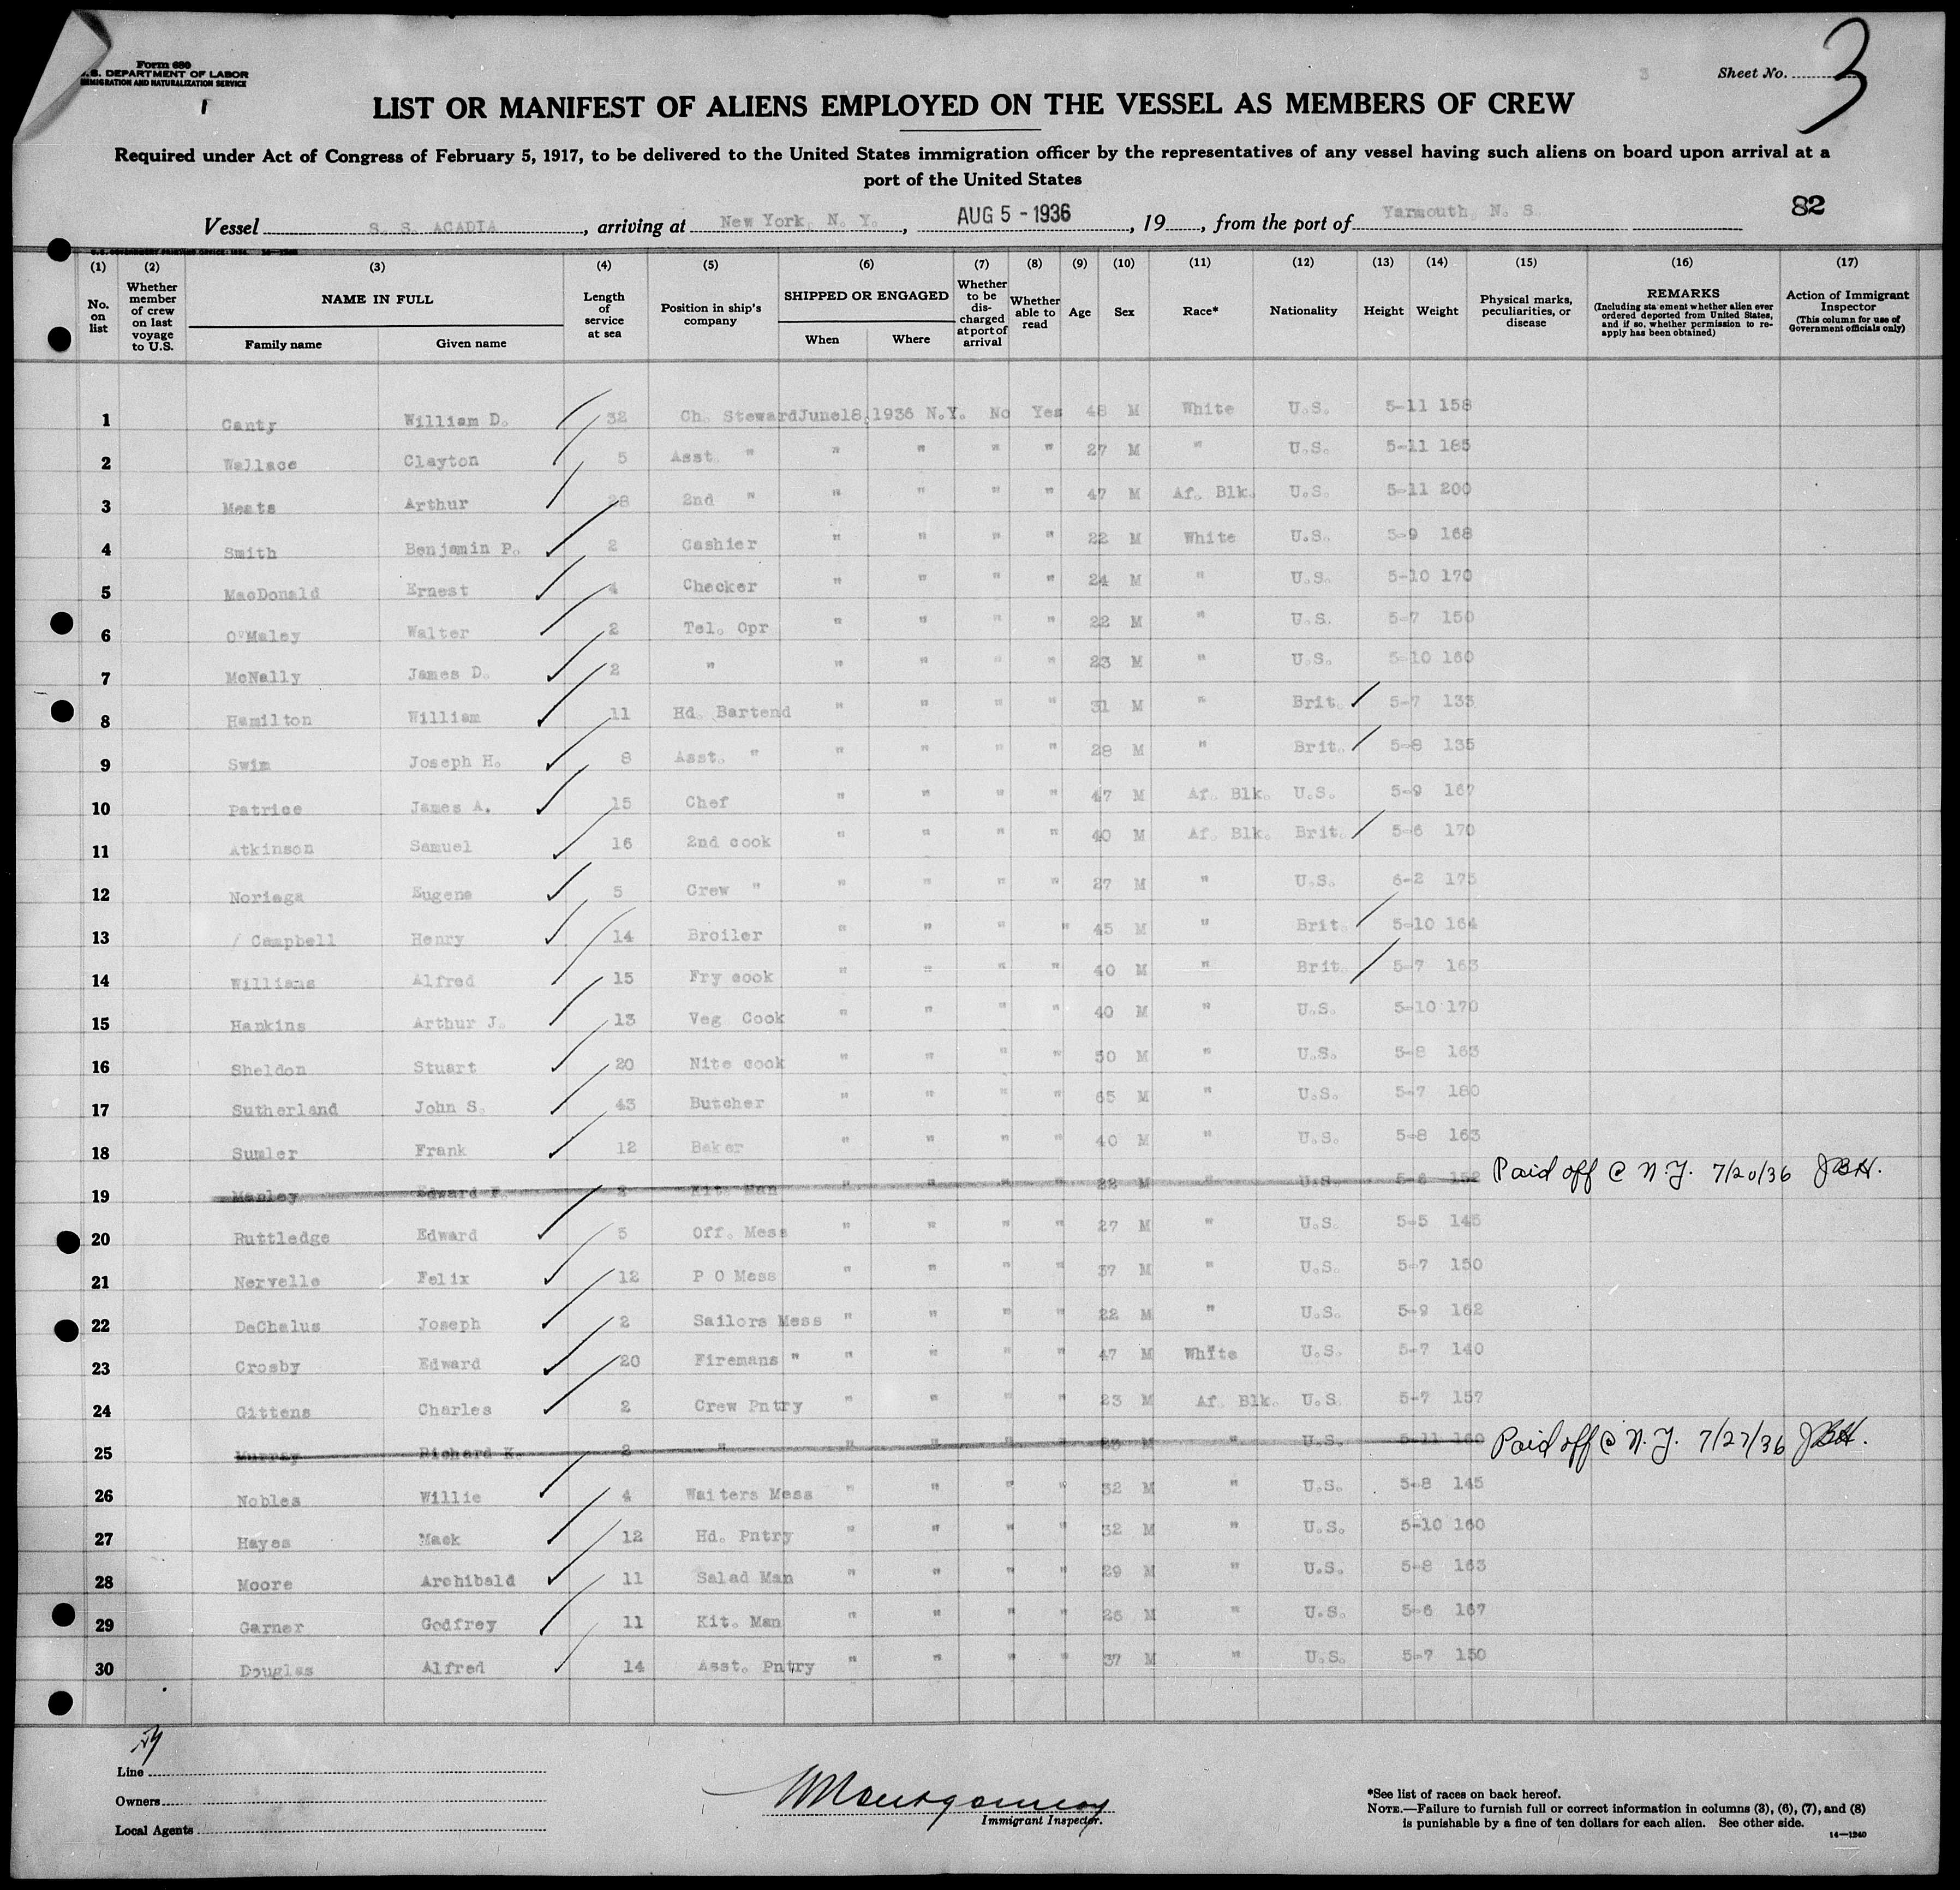 Form 680
U. S. DEPARTMENT OF LABOR
IMMIGRATION AND NATURALIZATION SERVICE
3 Sheet No. 3
LIST OR MANIFEST OF ALIENS EMPLOYED ON THE VESSEL AS MEMBERS OF CREW
Required under Act of Congress of February 5, 1917, to be delivered to the United States immigration officer by the representatives of any vessel having such aliens on board upon arrival at a
port of the United States
82
Vessel S. S. ACADIA, arriving at New York, N. Y., AUG 5 - 1936, 19, from the port of Yarmouth, N. S.
(1) (2) (3) (4) (5) (6) (7) (8) (9) (10) (11) (12) (13) (14) (15) (16) (17)
No. on list Whether member of crew on last voyage to U.S. NAME IN FULL Family name Given name Length of service at sea Position in ship's company SHIPPED OR ENGAGED When Where Whether to be discharged at port of arrival Whether able to read Age Sex Race* Nationality Height Weight Physical marks, peculiarities, or disease REMARKS (Including statement whether alien ever ordered deported from United States, and if so, whether permission to reapply has been obtained) Action of Immigrant Inspector (This column for use of Government officials only)
1 Canty William D. 32 Ch. Steward June18,1936 N.Y. No Yes 48 M White U.S. 5-11 158
2 Wallace Clayton 5 Asst. " " " " " 27 M " U.S. 5-11 185
3 Meats Arthur 28 2nd " " " " " 47 M Af. Blk. U.S. 5-11 200
4 Smith Benjamin P. 2 Cashier " " " " 22 M White U.S. 5-9 168
5 MacDonald Ernest 4 Checker " " " " 24 M " U.S. 5-10 170
6 O'Maley Walter 2 Tel. Opr " " " " 22 M " U.S. 5-7 150
7 McNally James D. 2 " " " " " 23 M " U.S. 5-10 160
8 Hamilton William 11 Hd. Bartend " " " " 31 M " Brit. 5-7 133
9 Swim Joseph H. 8 Asst. " " " " " 28 M " Brit. 5-8 135
10 Patrice James A. 15 Chef " " " " 47 M Af. Blk. U.S. 5-9 167
11 Atkinson Samuel 16 2nd cook " " " " 40 M Af. Blk. Brit. 5-6 170
12 Noriega Eugene 5 Crew " " " " " 27 M " U.S. 6-2 175
13 / Campbell Henry 14 Broiler " " " " 45 M " Brit. 5-10 164
14 Williams Alfred 15 Fry cook " " " " 40 M " Brit. 5-7 163
15 Hankins Arthur J. 13 Veg Cook " " " " 40 M " U.S. 5-10 170
16 Sheldon Stuart 20 Nite cook " " " " 50 M " U.S. 5-8 163
17 Sutherland John S. 43 Butcher " " " " 65 M " U.S. 5-7 180
18 Sumler Frank 12 Baker " " " " 40 M " U.S. 5-8 163
19 Manley Edward F. 2 Kit. Man " " " " 22 M " U.S. 5-6 152 Paid off @ N.Y. 7/20/36 JBH.
20 Ruttledge Edward 5 Off. Mess " " " " 27 M " U.S. 5-5 145
21 Nervelle Felix 12 P O Mess " " " " 37 M " U.S. 5-7 150
22 DeChalus Joseph 2 Sailors Mess " " " " 22 M " U.S. 5-9 162
23 Crosby Edward 20 Firemans " " " " " 47 M White U.S. 5-7 140
24 Gittens Charles 2 Crew Pntry " " " " 23 M Af. Blk. U.S. 5-7 157
25 Murray Richard K. 2 " " " " " 23 M " U.S. 5-11 160 Paid off @ N.Y. 7/27/36 JBH.
26 Nobles Willie 4 Waiters Mess " " " " 32 M " U.S. 5-8 145
27 Hayes Mack 12 Hd. Pntry " " " " 32 M " U.S. 5-10 160
28 Moore Archibald 11 Salad Man " " " " 29 M " U.S. 5-8 163
29 Garner Godfrey 11 Kit. Man " " " " 26 M " U.S. 5-6 167
30 Douglas Alfred 14 Asst. Pntry " " " " 37 M " U.S. 5-7 150
Line
Owners
Local Agents
WMontgomery
Immigrant Inspector.
*See list of races on back hereof.
NOTE.—Failure to furnish full or correct information in columns (3), (6), (7), and (8)
is punishable by a fine of ten dollars for each alien. See other side.
14—1240